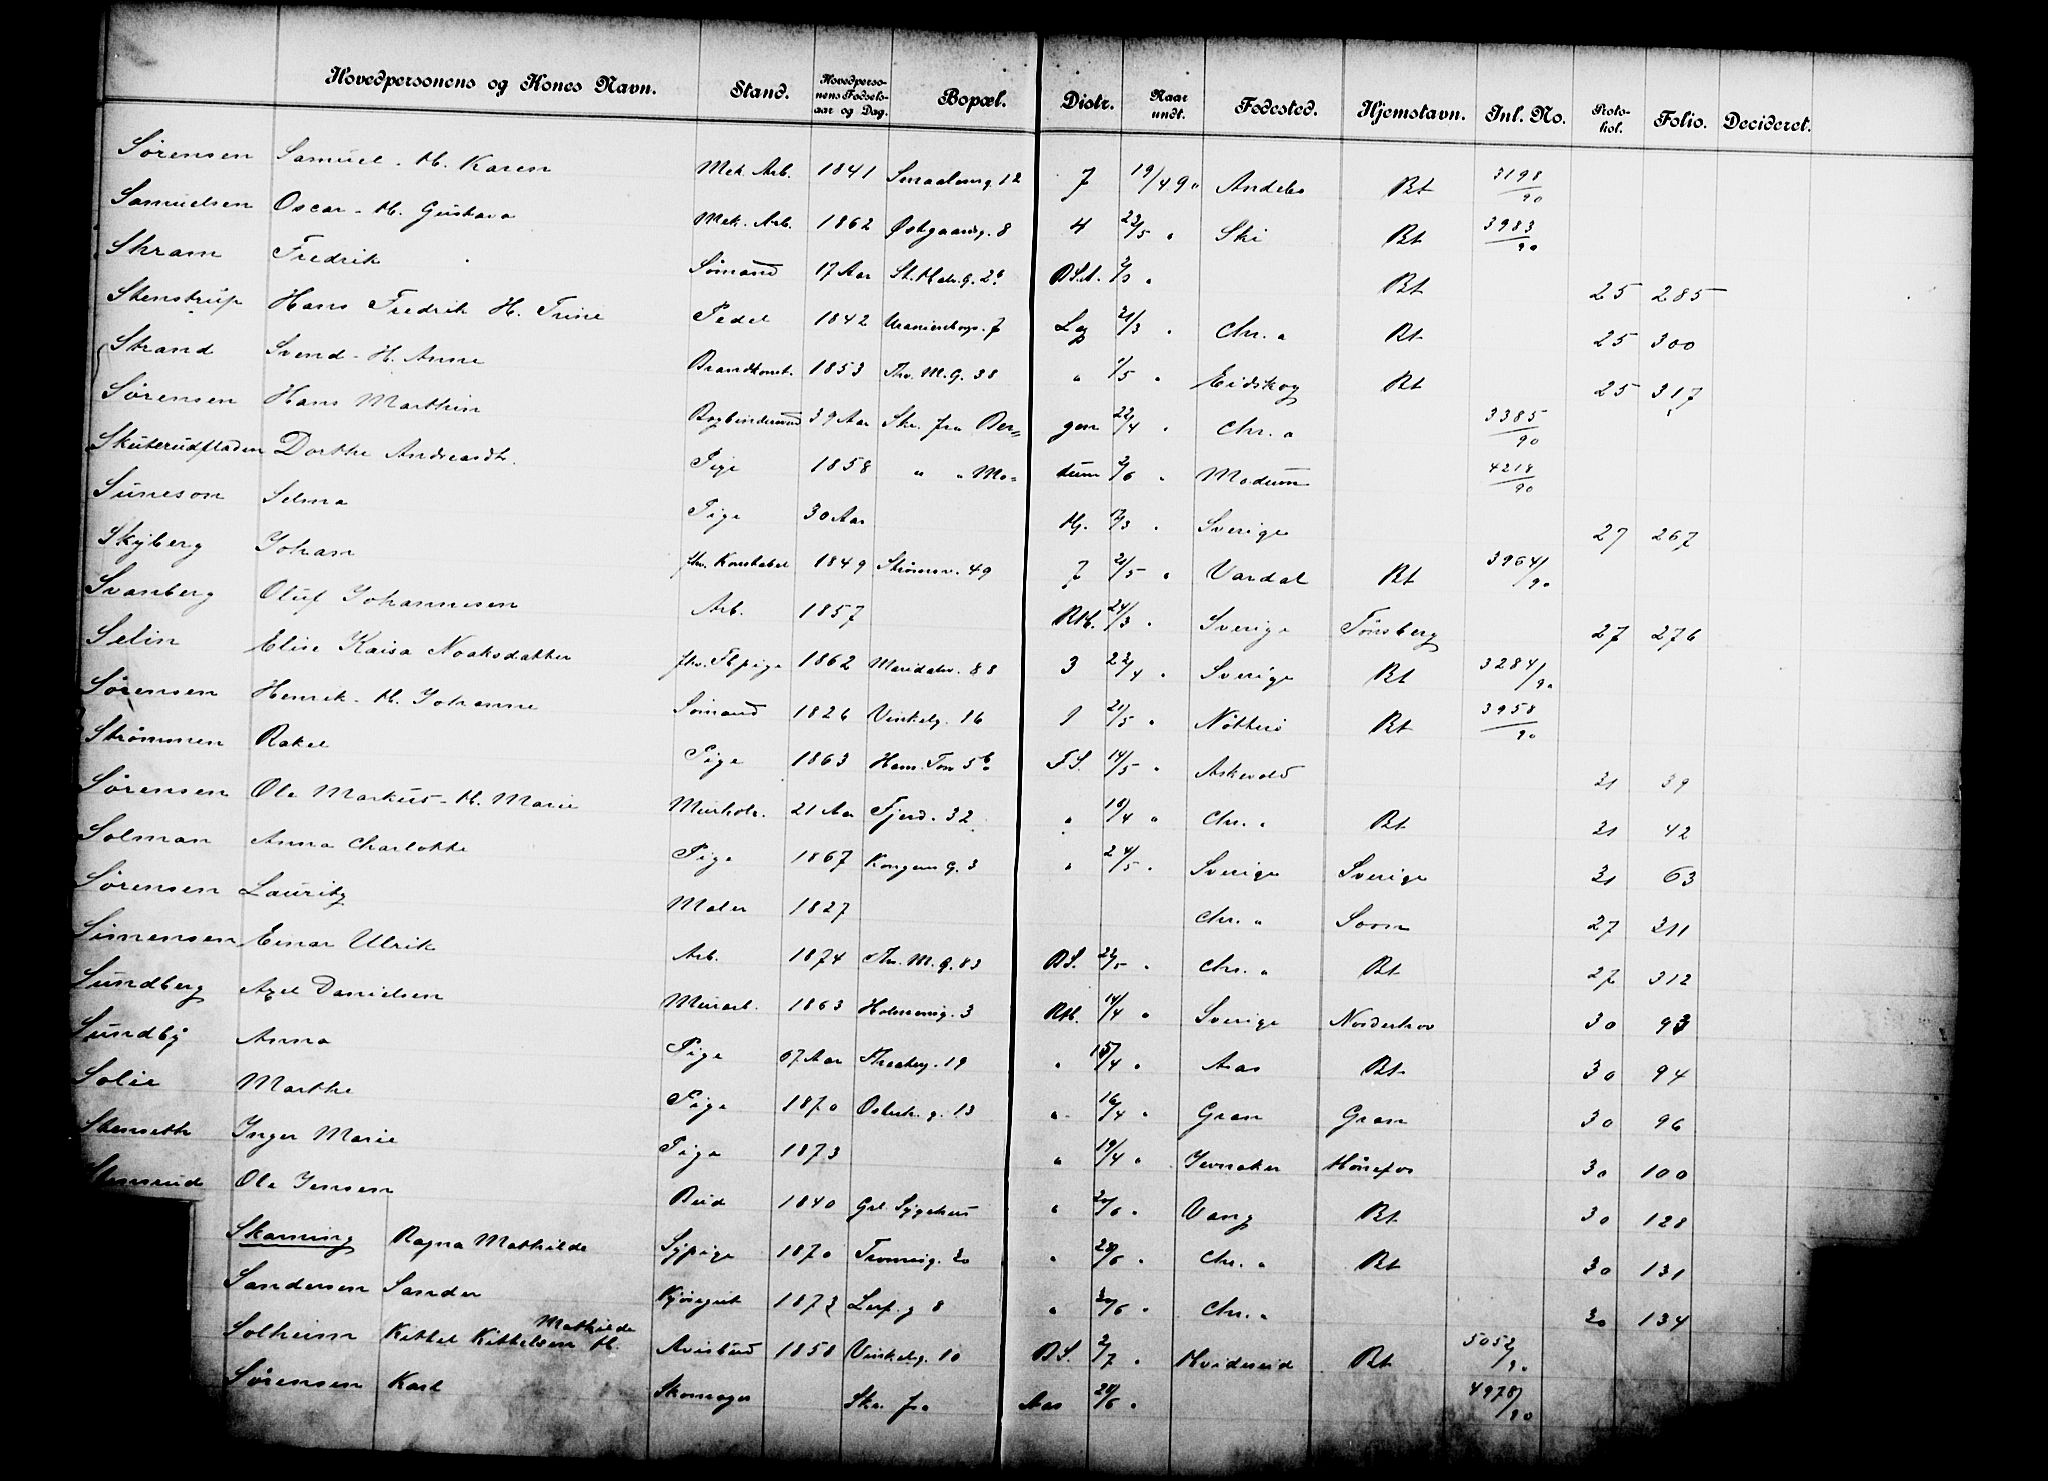 Hovedpersonens og Kones Navn. Stand. Hovedpersonens Fødselsaar og Dag. Bopæl. Distr. Naar undt. Fødested. Hjemstavn. Inl. No. Protokol. Folio. Decideret.
Sørensen Samuel - H. Karen Mek. Arb. 1841 Smaaleng. 12 7 19/4 90 Andebo Bt 3198/90
Samuelsen Oscar - H. Gustava Mek. Arb. 1862 Østgaardsg. 8 4 23/5 " Ski Bt 3983/90
Skram Fredrik Sømand 17 Aar St. Halv. G. 2b Bt 25 285
Stenstrup Hans Fredrik H. Trine Pedel 1842 Uranienborgv. 7 Lg 21/3 " Chr.a Bt 25 300
Strand Svend - H. Anne Brandkonst. 1853 Thv. M. G. 38 " 1/5 " Eidskog Bt 25 317
Sørensen Hans Marthin Bogbindersvend 39 Aar Skr. fra Ber= gen 22/4 " Chr.a 3385/90
Skuterudfladen Dorthe Andreasdtr. Pige 1858 " " Mo= dum 2/6 " Modum 4218/90
Suneson Selma Pige 30 Aar Hj. " Sverige 27 267
Skyberg Johan fhv. Konstabel 1849 Strømsv. 49 7 21/5 " Vardal Bt 3964/90
Svanberg Oluf Johannesen Arb. 1857 RH. 24/3 " Sverige Tønsberg 27 276
Selin Elise Kaisa Noaksdatter fhv. Fbpige 1862 Maridalsv. 88 3 22/4 " Sverige Bt 3284/90
Sørensen Henrik - H. Johanne Sømand 1826 Vinkelg. 16 1 21/5 " Nøtterø Bt 3958/90
Strømmen Rakel Pige 1863 Ham. Torv 5b FS. 14/5 " Askevold 31 39
Sørensen Ole Markus - H. Marie Murhdr. 21 Aar Fjerd. 32 " 18/4 " Chr.a Bt 31 42
Solman Anna Charlotte Pige 1867 Kongens G. 3 " 24/5 " Sverige Sverige 31 63
Sørensen Lauritz Maler 1827 Chr.a Soon 27 311
Simensen Einar Ulrik Arb. 1874 Thv. M. G. 83 BS. 22/5 " Chr.a Bt 27 312
Sundberg Axel Danielsen Murarb. 1863 Holmensg. 3 RH. 14/4 " Sverige Norderhov 30 93
Sundby Anna Pige 67 Aar Theaterg. 19 " 15/4 " Aas Bt 30 94
Solie Marthe Pige 1870 Osterh. g. 13 " 16/4 " Gran Gran 30 96
Stenseth Inger Marie Pige 1873 " 19/4 " Jevnaker Hønefos 30 100
Ole Jensen Bud 1840 Grl. Sygehus " 20/6 " Vang Bt 30 128
Skarning Ragna Mathilde Sypige 1870 Tromsøg. 20 " 28/6 " Chr.a Bt 30 131
Sandersen Sander Kjøregut 1873 " 30/6 " Chr.a 30 134
Solheim Kittel Kittelsen H. Mathilde Avisbud 1858 Vinkelg. 10 BS. 2/7 " Hvideseid Bt 5052/90
Sørensen Karl Skomager Skr. fra Aas 28/6 " 4978/90